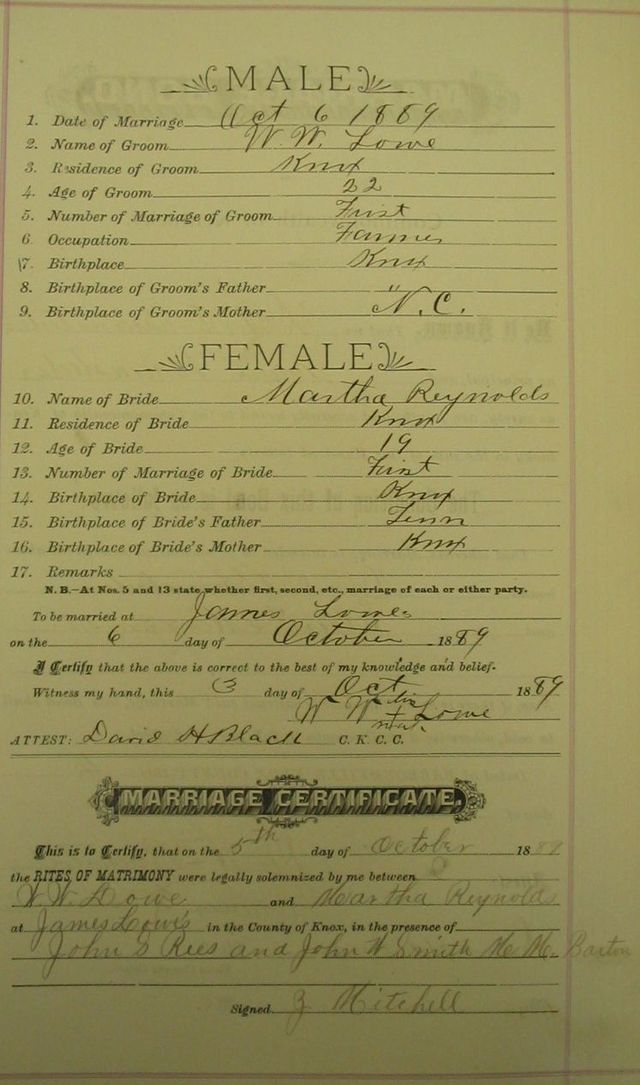 MALE
1. Date of Marriage Oct 6 1889
2. Name of Groom W. W. Lowe
3. Residence of Groom Knox
4. Age of Groom 22
5. Number of Marriage of Groom First
6. Occupation Farmer
7. Birthplace Knox
8. Birthplace of Groom's Father "
9. Birthplace of Groom's Mother N. C.
FEMALE
10. Name of Bride Martha Reynolds
11. Residence of Bride Knox
12. Age of Bride 19
13. Number of Marriage of Bride First
14. Birthplace of Bride Knox
15. Birthplace of Bride's Father Tenn
16. Birthplace of Bride's Mother Knox
17. Remarks
N. B.—At Nos. 5 and 13 state whether first, second, etc., marriage of each or either party.
To be married at James Lowes
on the 6 day of October 1889
I Certify that the above is correct to the best of my knowledge and belief.
Witness my hand, this 3 day of Oct 1889
his
W W + Lowe
mark
ATTEST: David H Black C. K. C. C.
MARRIAGE CERTIFICATE.
This is to Certify, that on the 5th day of October 1889
the RITES OF MATRIMONY were legally solemnized by me between
W W Lowe and Martha Reynolds
at James Lowe's in the County of Knox, in the presence of
John S Rees and John W Smith M. M. Barton
Signed Mitchell